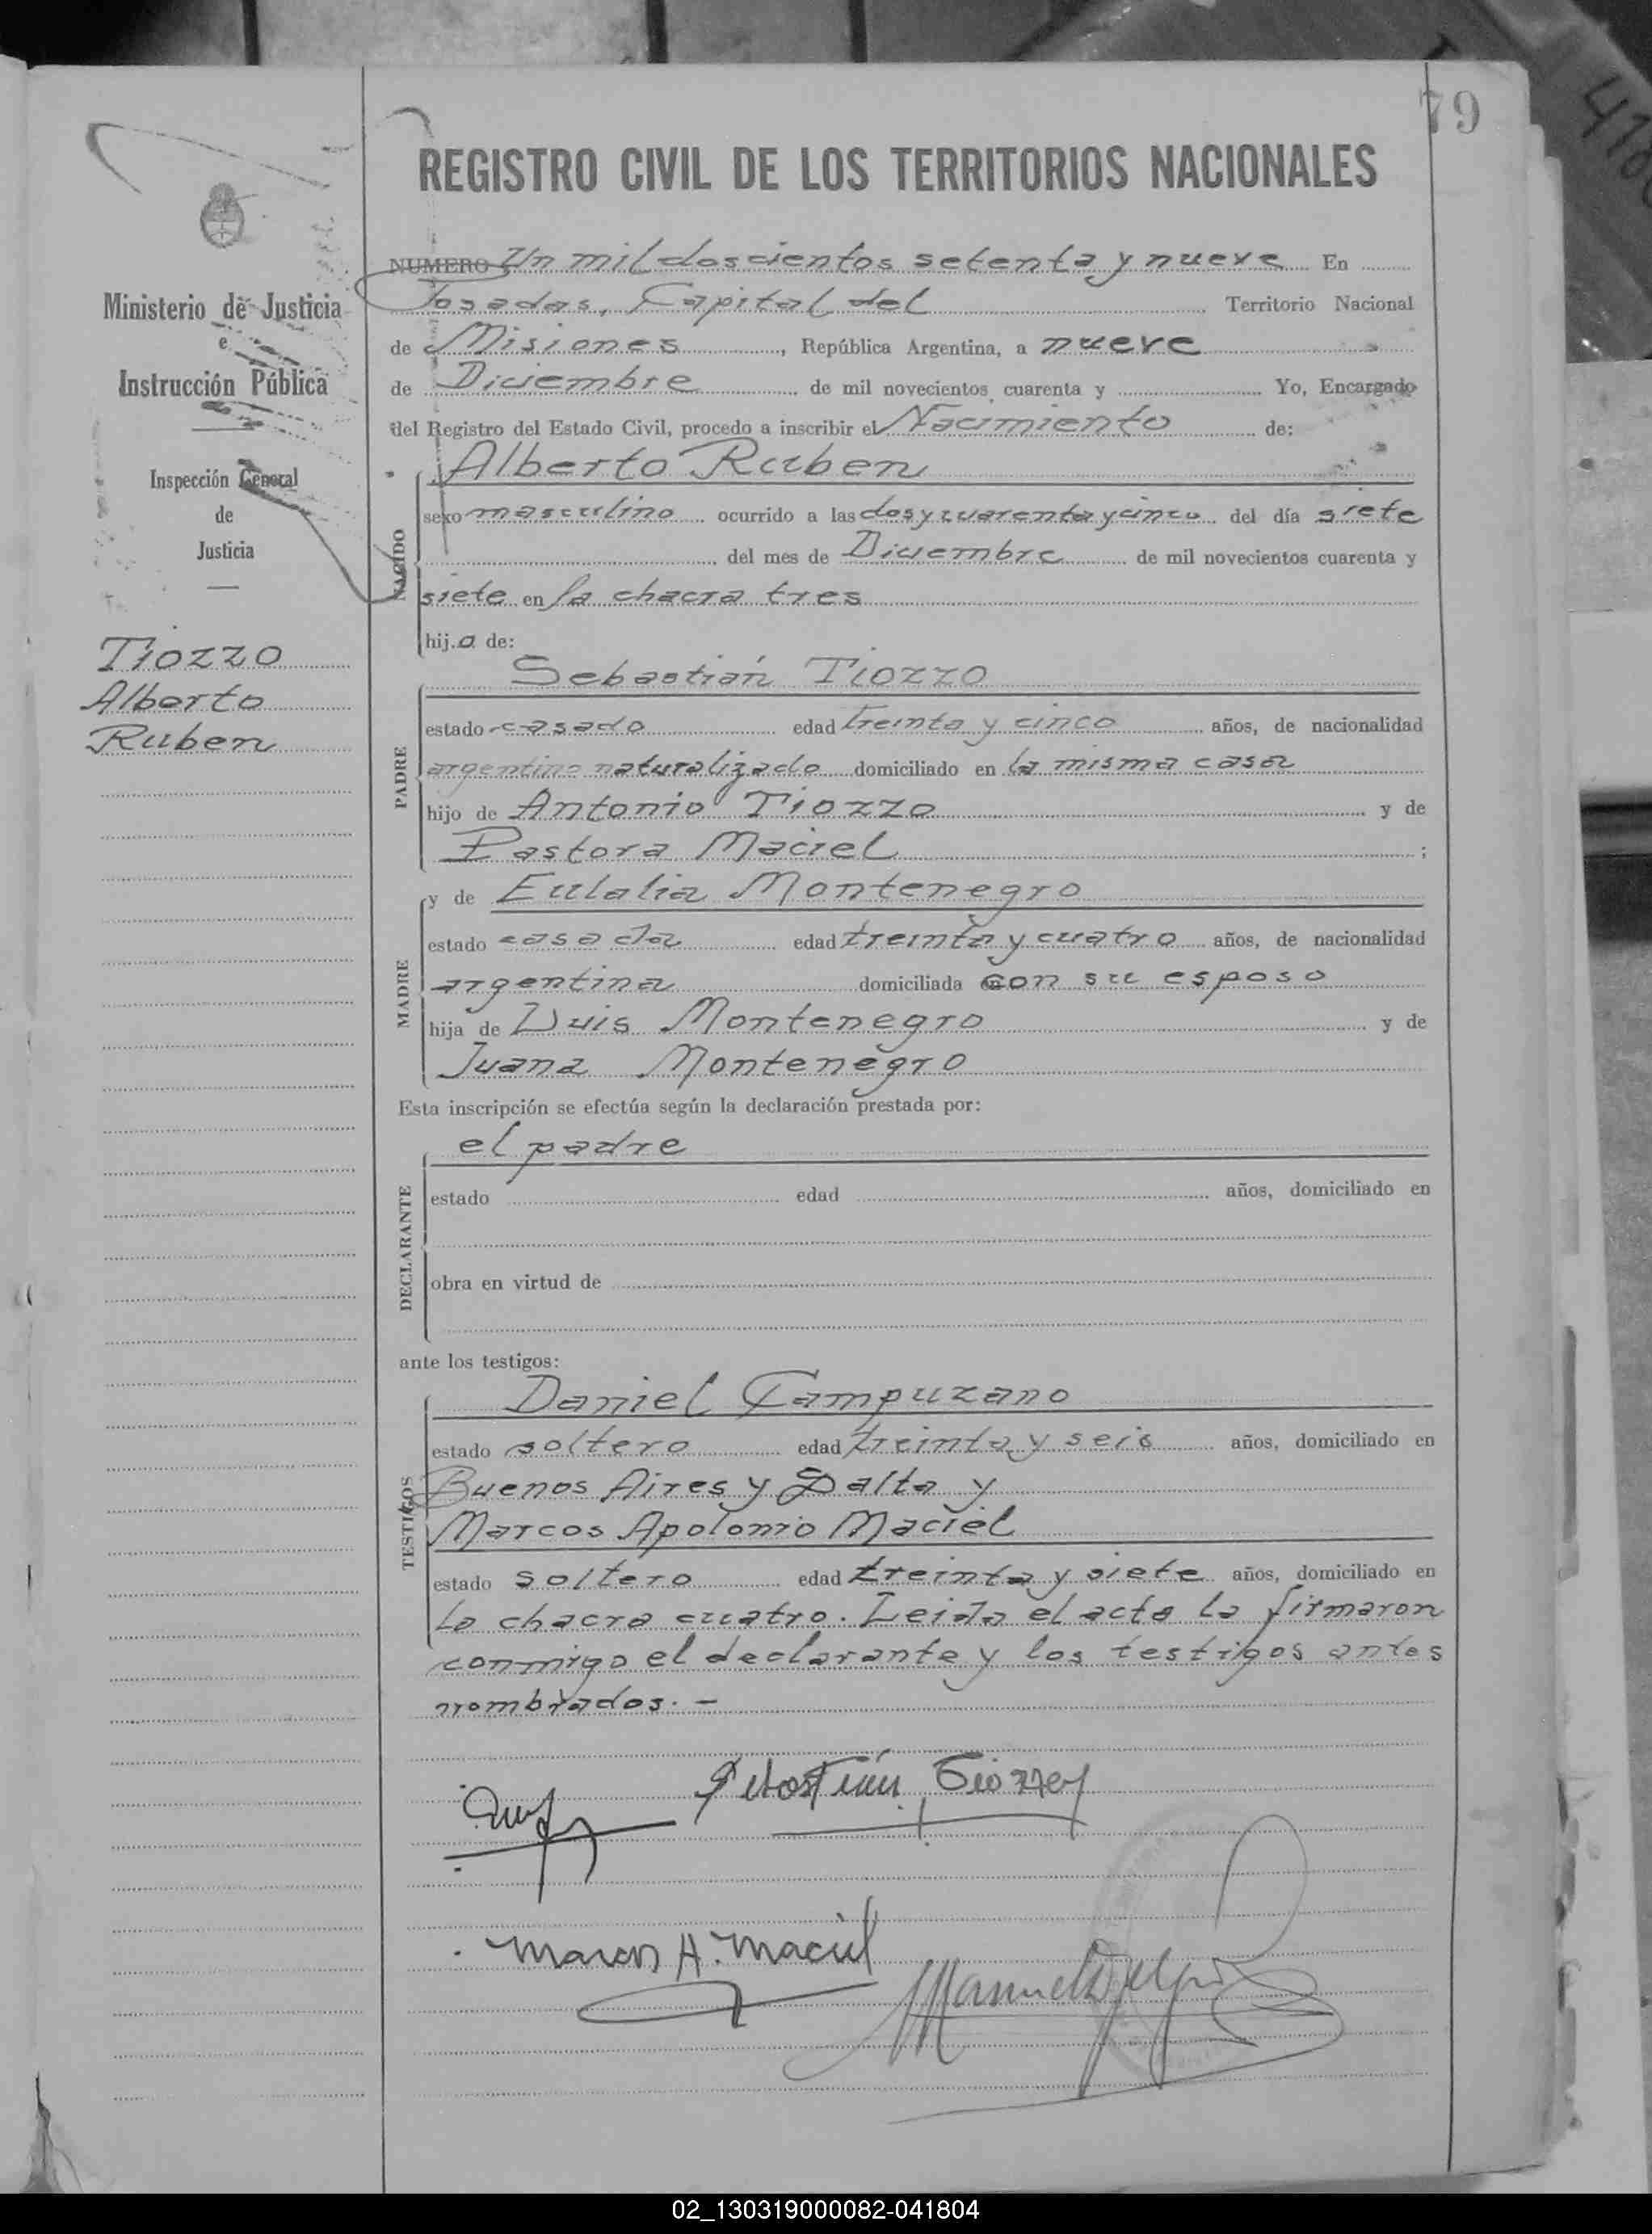 79
REGISTRO CIVIL DE LOS TERRITORIOS NACIONALES
Ministerio de Justicia
e
Instrucción Pública
Inspección General
de
Justicia
Tiozzo
Alberto
Ruben
NUMERO Un mil doscientos setenta y nueve En
Posadas, Capital del Territorio Nacional
de Misiones, República Argentina, a nueve
de Diciembre de mil novecientos cuarenta y Yo, Encargado
del Registro del Estado Civil, procedo a inscribir el Nacimiento de:
Alberto Ruben
NACIDO
sexo masculino ocurrido a las dos y cuarenta y cinco del día siete
del mes de Diciembre de mil novecientos cuarenta y
siete en la chacra tres
hij.o de:
Sebastián Tiozzo
PADRE
estado casado edad treinta y cinco años, de nacionalidad
argentino naturalizado domiciliado en la misma casa
hijo de Antonio Tiozzo y de
Pastora Maciel ;
y de Eulalia Montenegro
MADRE
estado casada edad treinta y cuatro años, de nacionalidad
argentina domiciliada con su esposo
hija de Luis Montenegro y de
Juana Montenegro
Esta inscripción se efectúa según la declaración prestada por:
el padre
DECLARANTE
estado edad años, domiciliado en
obra en virtud de
ante los testigos:
Daniel Campuzano
TESTIGOS
estado soltero edad treinta y seis años, domiciliado en
Buenos Aires y Salta y
Marcos Apolonio Maciel
estado soltero edad treinta y siete años, domiciliado en
la chacra cuatro. Leida el acta la firmaron
conmigo el declarante y los testigos antes
nombrados. -
Sebastián Tiozzo
Marcos A. Maciel
02_130319000082-041804